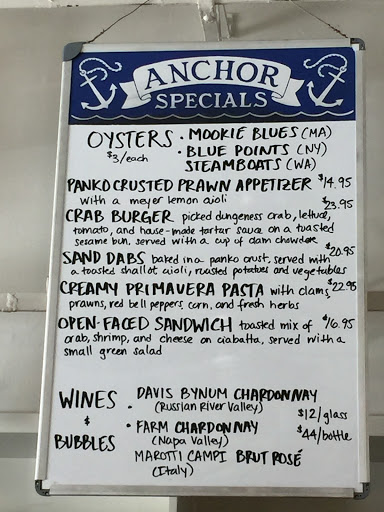 ANCHOR
SPECIALS
OYSTERS • MOOKIE BLUES (MA)
$3/each • BLUE POINTS (NY)
STEAMBOATS (WA)
PANKO CRUSTED PRAWN APPETIZER $14.95
with a meyer lemon aioli
CRAB BURGER picked dungeness crab, lettuce, $23.95
tomato, and house-made tartar sauce on a toasted
sesame bun, served with a cup of clam chowder
SAND DABS baked in a panko crust, served with $20.95
a toasted shallot aioli, roasted potatoes and vegetables
CREAMY PRIMAVERA PASTA with clams, $22.95
prawns, red bell peppers, corn, and fresh herbs
OPEN-FACED SANDWICH toasted mix of $16.95
crab, shrimp, and cheese on ciabatta, served with a
small green salad
WINES • DAVIS BYNUM CHARDONNAY
(Russian River Valley)
& $12/glass
BUBBLES • FARM CHARDONNAY $44/bottle
(Napa Valley)
MAROTTI CAMPI BRUT ROSÉ
(Italy)